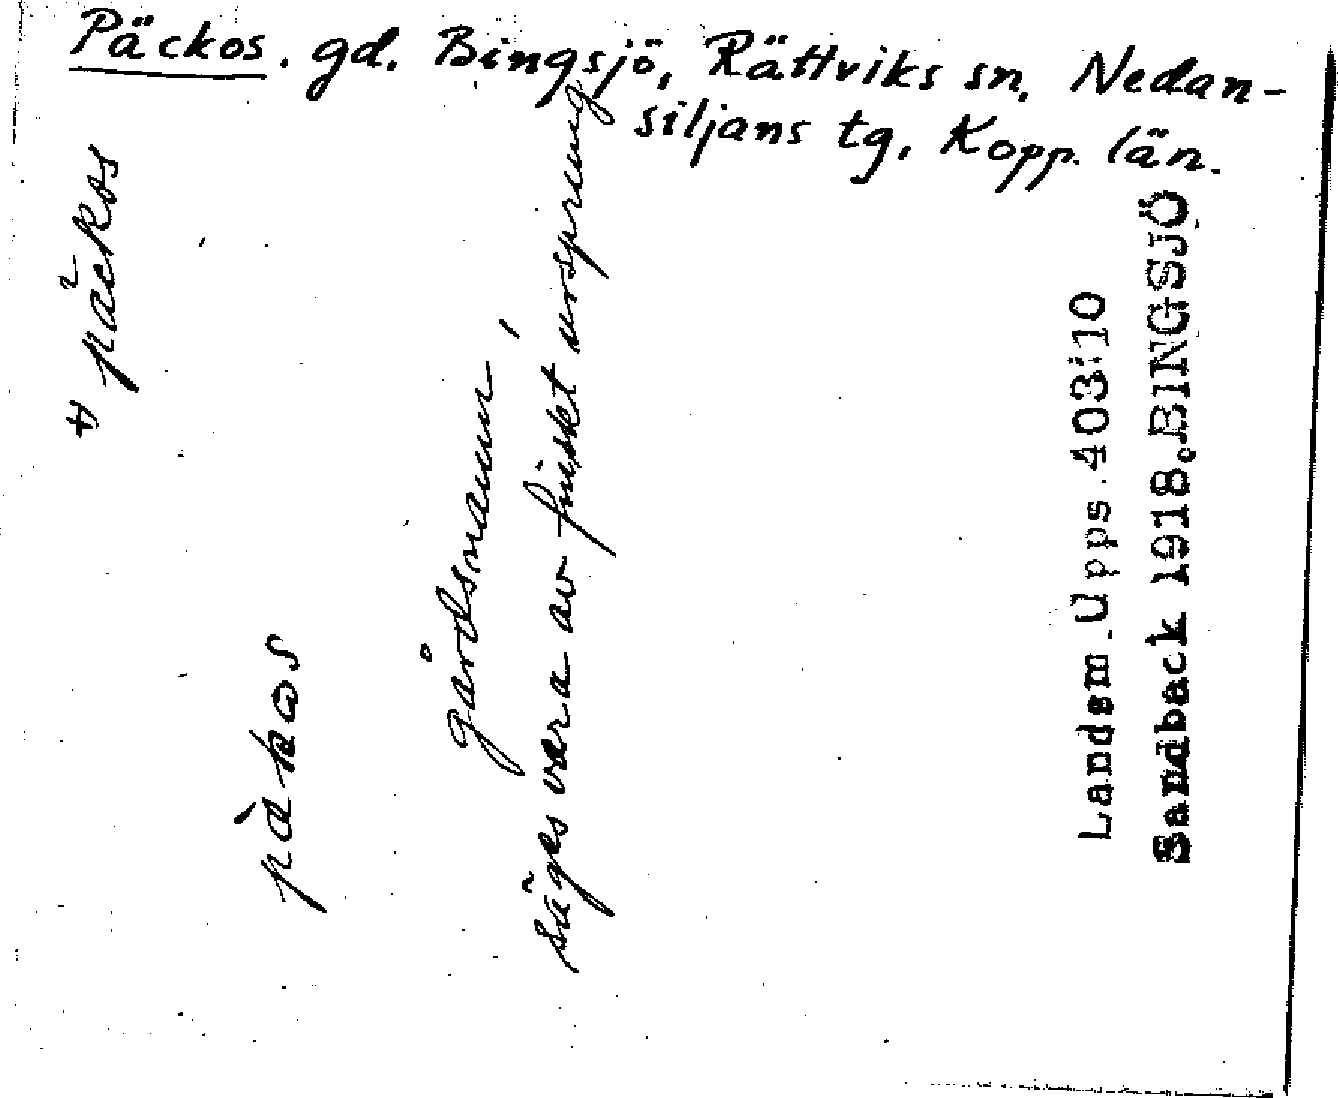 Päckos. gd. Bingsjö, Rättviks sn, Nedan-
siljans tg, Kopp. län.
päckos
pàkos
gårdsnamn,
säges vera av finskt ursprung
Landsm. Upps. 403:10
Sandback 1918. BINGSJÖ